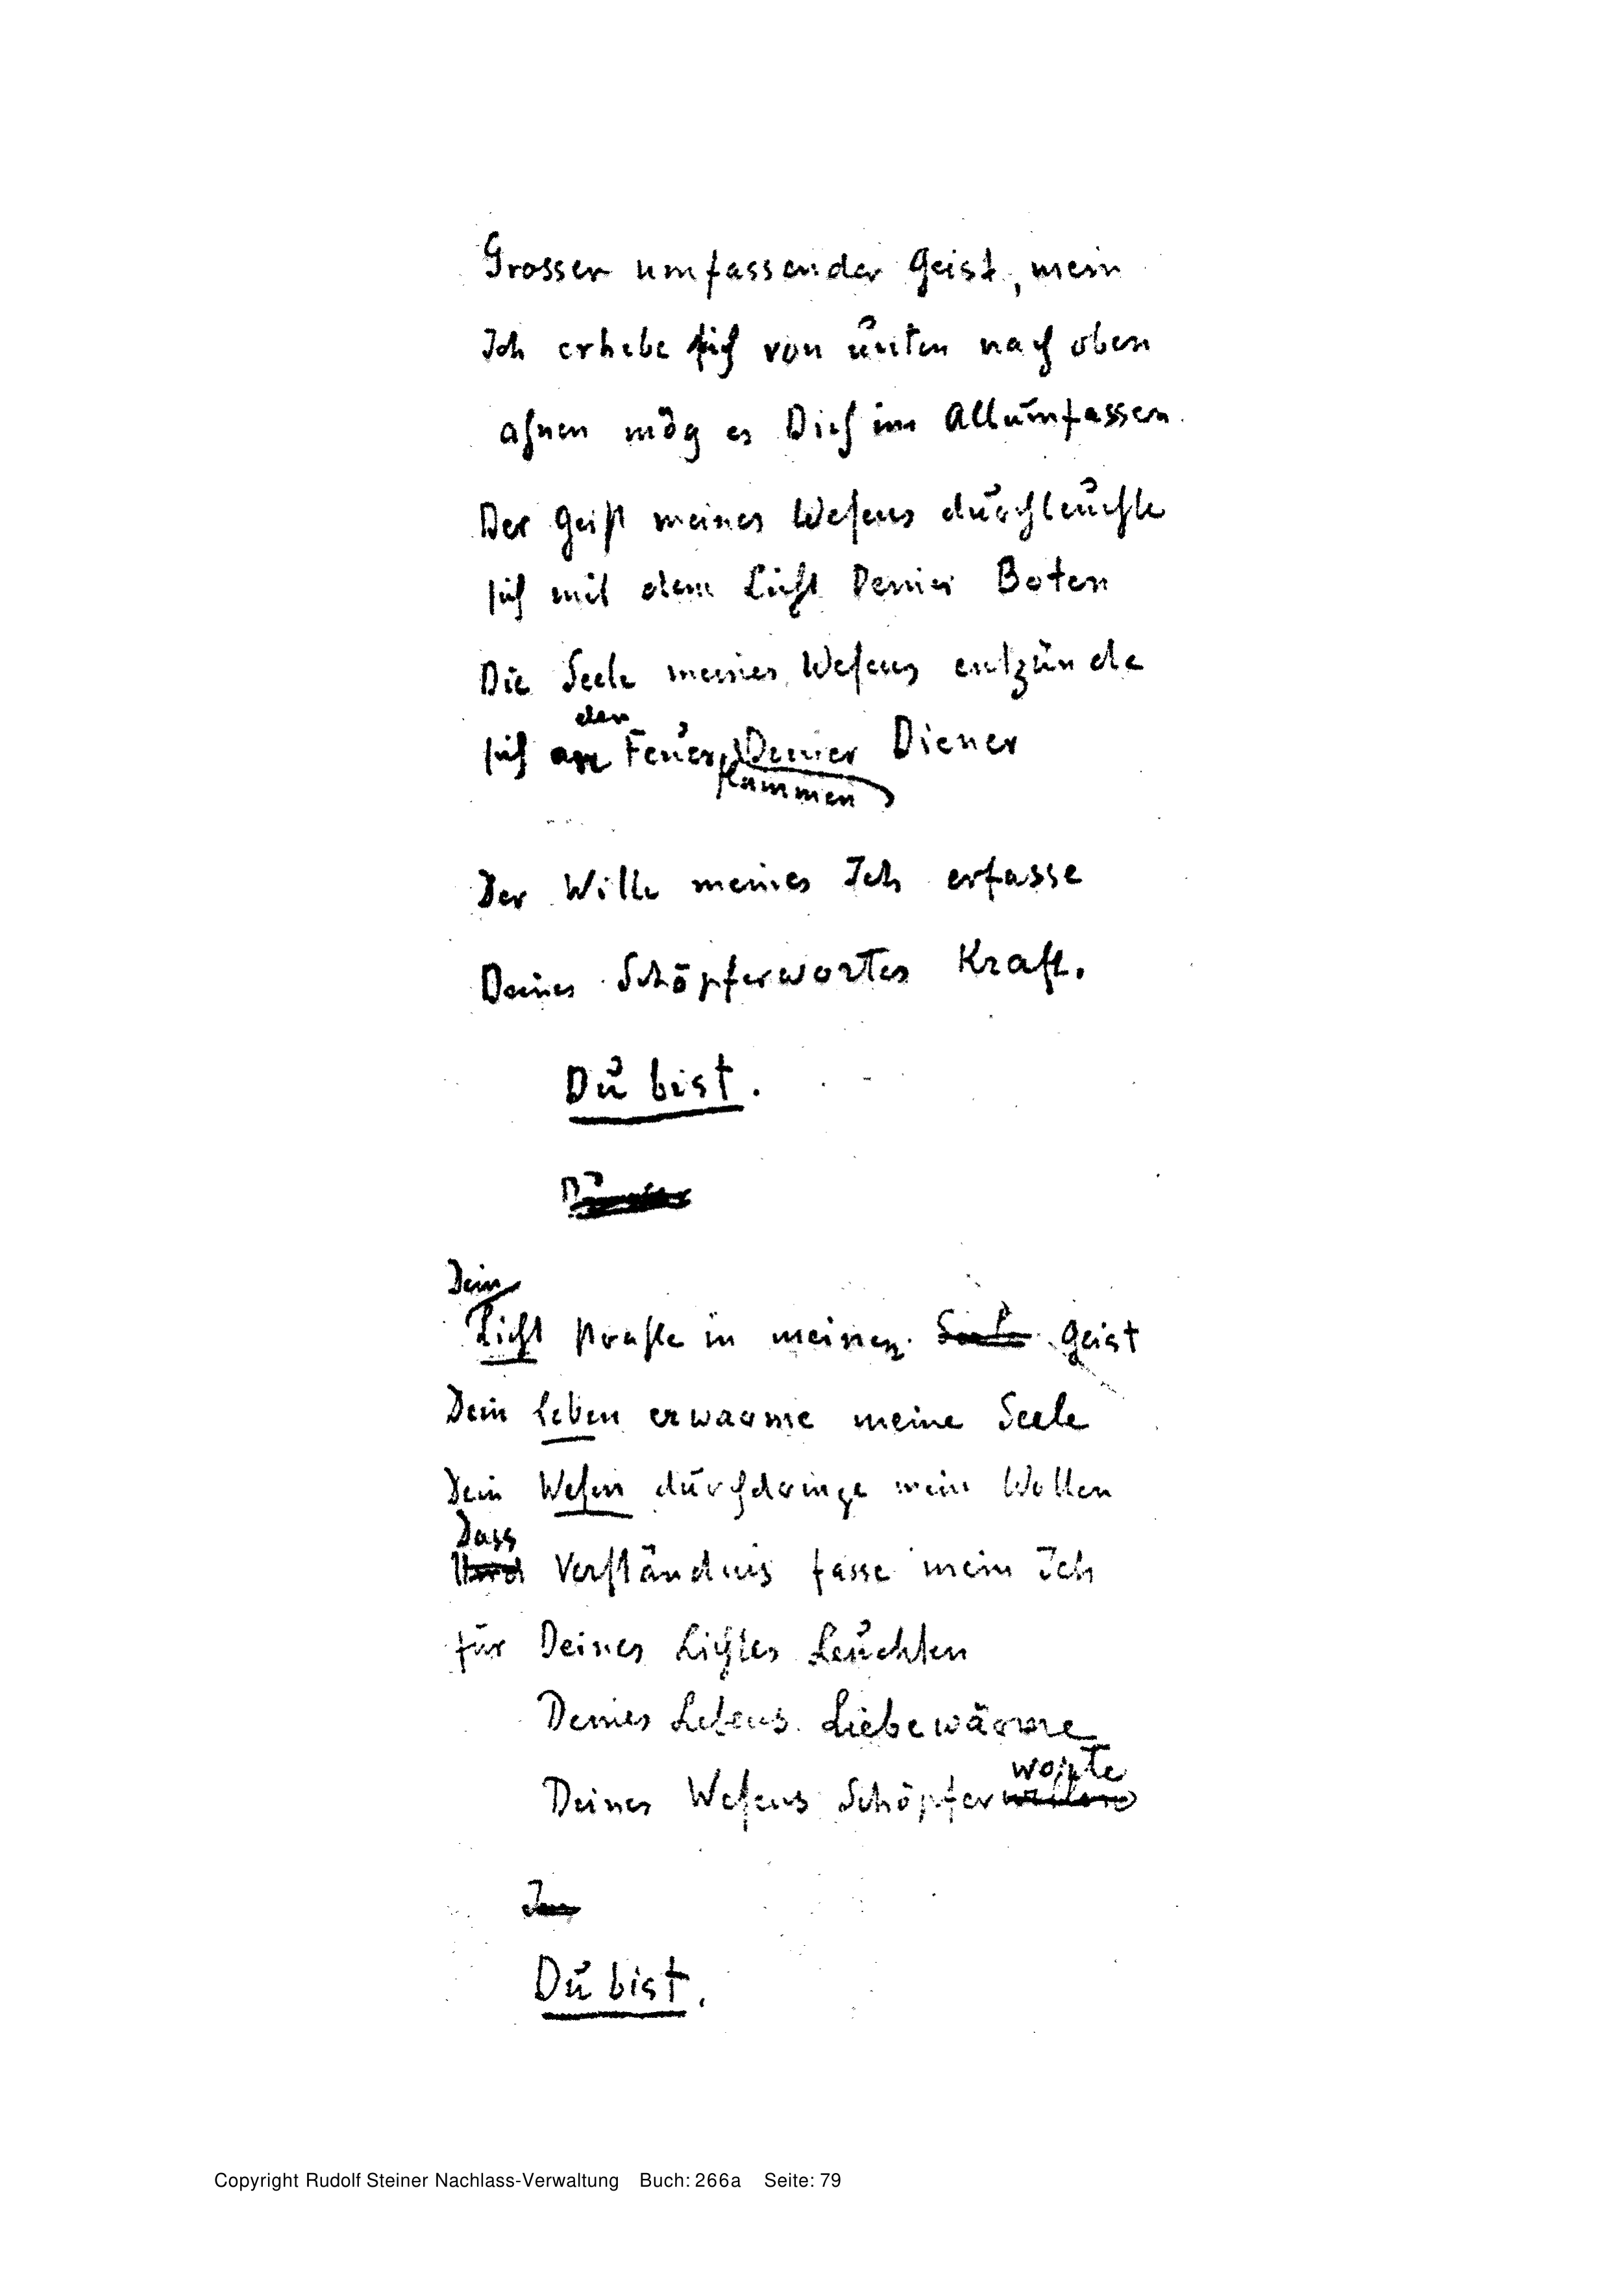 Grosser umfassender Geist, mein
Ich erhebe sich von unten nach oben
ahnen mög es Dich im Allumfassen.
Der Geist meines Wesens durchleuchte
sich mit dem Licht Deiner Boten
Die Seele meines Wesens entzünde
den
sich an Feuer Deiner Diener
flammen
Der Wille meines Ich erfasse
Deines Schöpferwortes Kraft.
Du bist.
Dein
Licht strahle in meinen Seele Geist
Dein Leben erwarme meine Seele
Dein Wesen durchdringe mein Wollen
Dass
Und Verständnis fasse mein Ich
für Deines Lichtes Leuchten
Deines Lebens Liebewärme
worte
Deines Wesens Schöpfer
Du bist.
Copyright Rudolf Steiner Nachlass-Verwaltung Buch: 266a Seite: 79